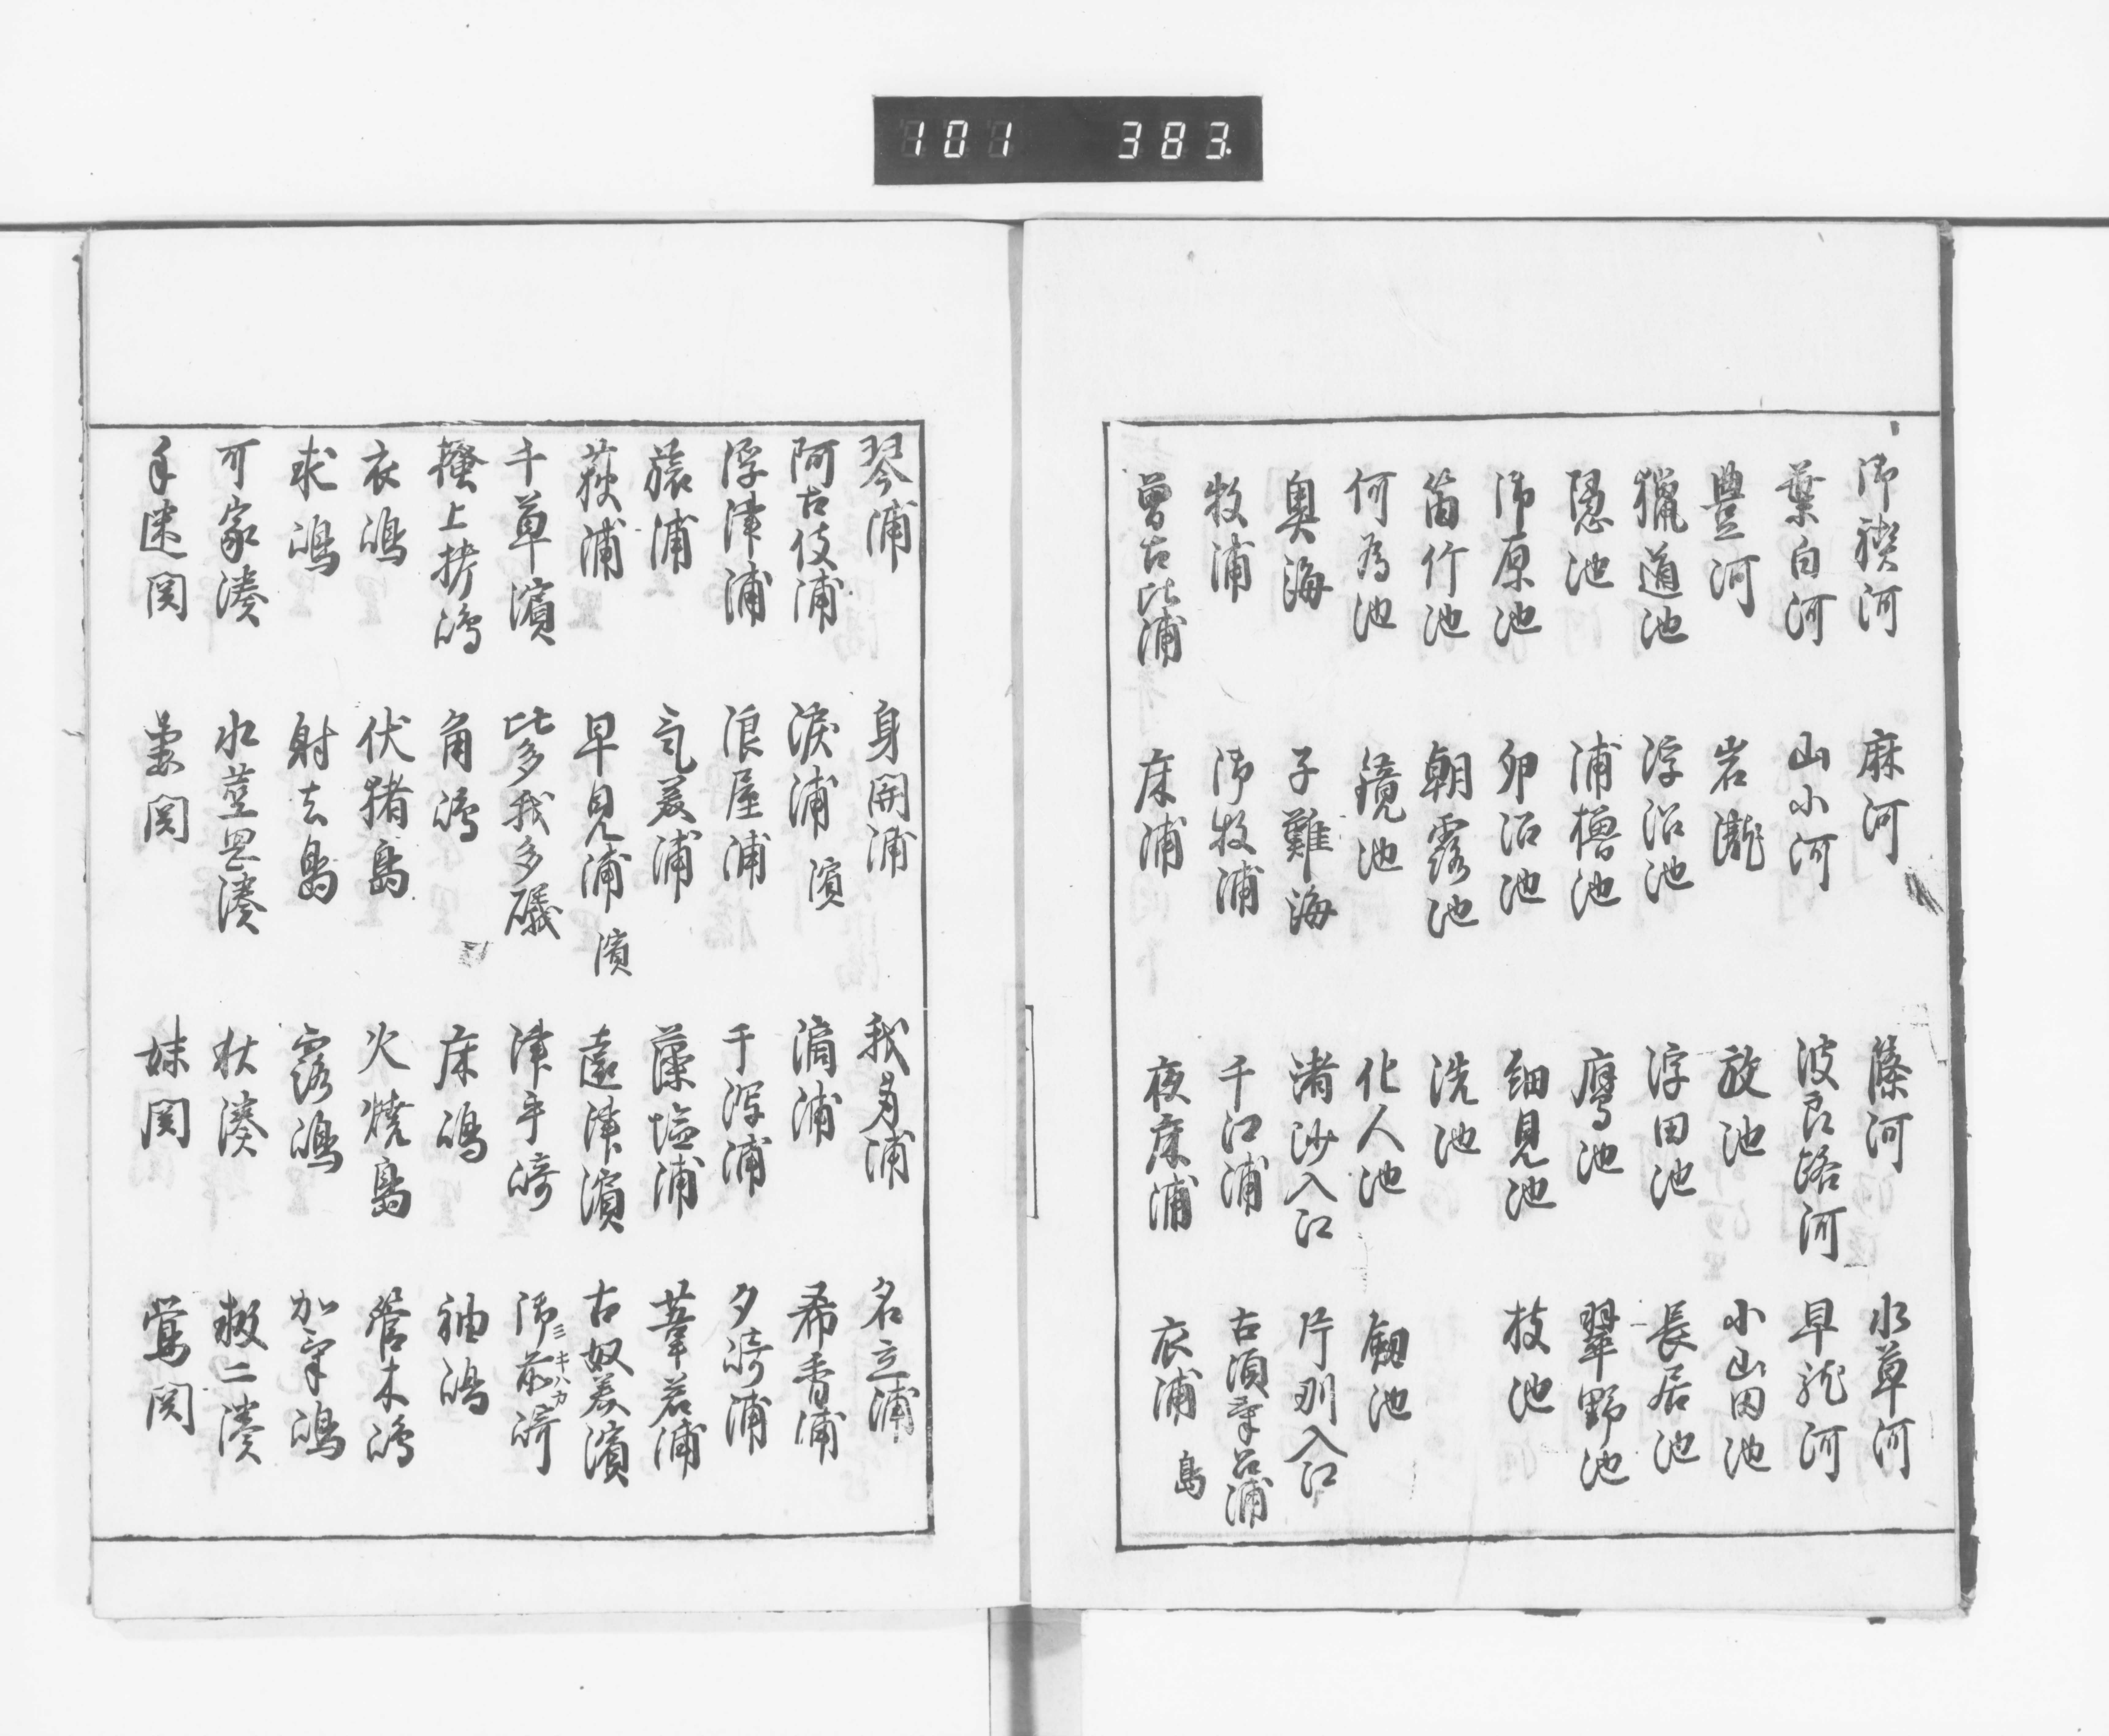 101 383
御禊河 麻河 篠河 水草河
葉白河 山小河 波良路河 早瀧河
豊河 岩瀧 放池 小山田池
獵道池 浮沼池 浮田池 長居池
隠池 浦櫓池 鷹池 翠野池
御原池 卯沼池 細見池 枝池
菌竹池 朝露池 洗池
何為池 鏡池 化人池 劔池
奥海 子難海 渚沙入江 片刈入江
牧浦 御牧浦 千江浦 古須氣呂浦
曽古比浦 床浦 夜床浦 衣浦 島
琴浦 身開浦 我身浦 名立浦
阿古伎浦 涙浦 濱 滴浦 希香浦
浮津浦 浪屋浦 干潟浦 夕﨑浦
旅浦 気美浦 藻塩浦 葦若浦
荻浦 早見浦 濱 遠津濱 古奴美濱
千草濱 比多我多礒 津乎﨑 御前﨑 ミキハカ
上 嶋 角嶋 床嶋 袖嶋
衣嶋 伏猪島 火燒島 管木嶋
求嶋 射去島 露嶋 加家嶋
可家湊 水莖岡湊 秋湊 数二湊
手速関 妻関 妹関 鶯関